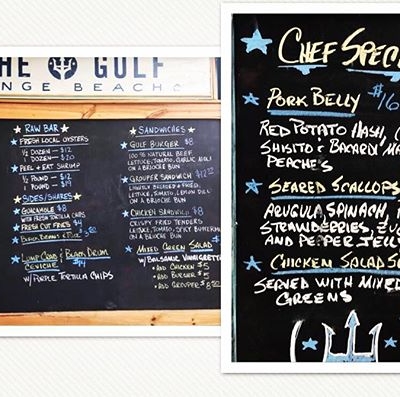 THE GULF
ORANGE BEACH
RAW BAR
FRESH LOCAL OYSTERS
1/2 DOZEN — $12
1 DOZEN — $20
PEEL & EAT SHRIMP
1/2 POUND — $12
1 POUND — $19
SIDES/SHARES
GUACAMOLE $8
WITH FRESH TORTILLA CHIPS
FRESH CUT FRIES
BLACK BEANS & RICE
LUMP CRAB & BLACK DRUM
CEVICHE $14
W/PURPLE TORTILLA CHIPS
SANDWICHES
GULF BURGER $8
100% NATURAL BEEF
LETTUCE, TOMATO, GARLIC AIOLI
ON A BRIOCHE BUN
GROUPER SANDWICH
LIGHTLY BLACKENED & FRIED,
LETTUCE, TOMATO, LEMON DILL
ON A BRIOCHE BUN
CHICKEN SANDWICH $8
CRISPY FRIED TENDERS
LETTUCE, TOMATO, SPICY BUTTERMILK
ON A BRIOCHE BUN
MIXED GREEN SALAD
W/BALSAMIC VINAIGRETTE
ADD CHICKEN $5
ADD BURGER $5
ADD GROUPER
CHEF SPEC
PORK BELLY $16
RED POTATO HASH, C
SHISITO & BACARDI MA
PEACHES
SEARED SCALLOPS
ARUGULA, SPINACH,
STRAWBERRIES,
AND PEPPER JELLY
CHICKEN SALAD SA
SERVED WITH MIXED
GREENS